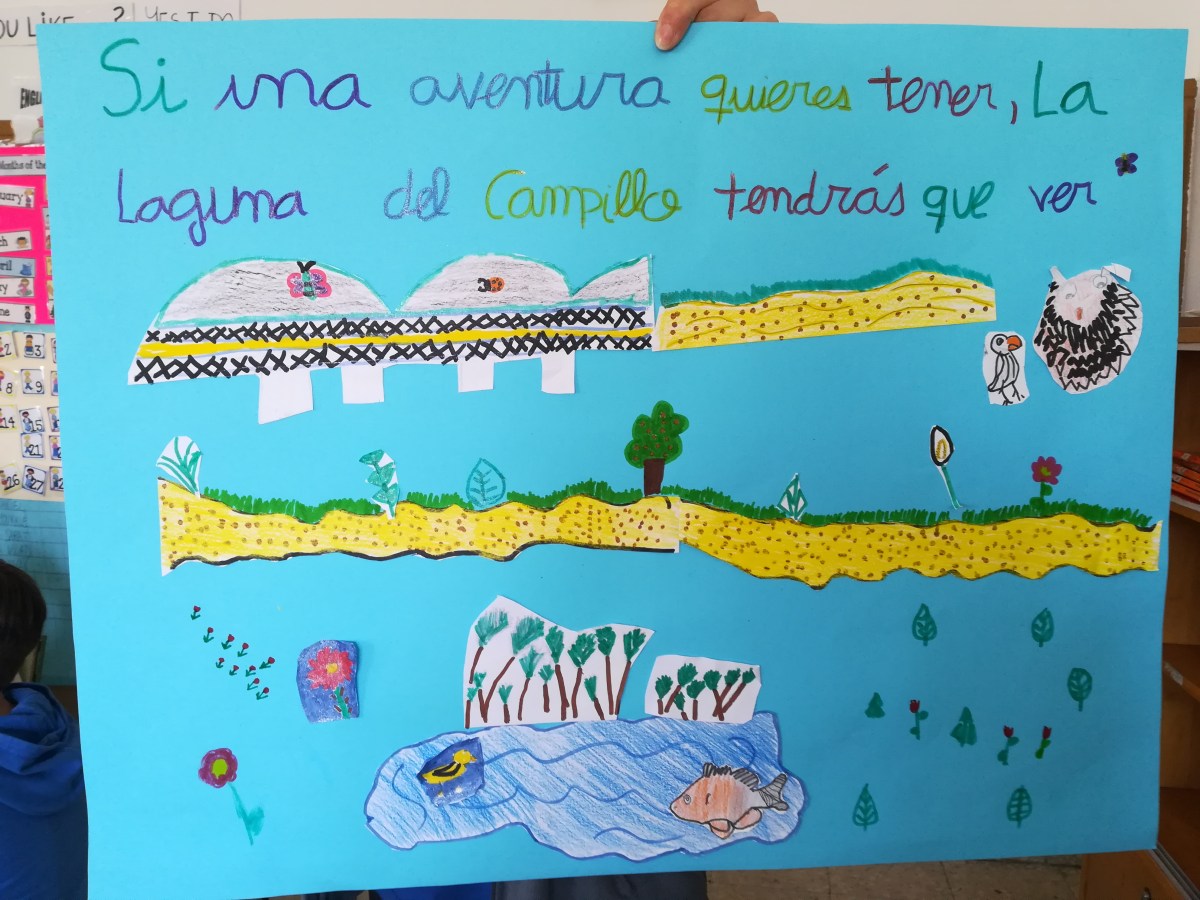 YOU LIKE ? YES I DO
Si una aventura quieres tener, La
Laguna del Campillo tendrás que ver
Months of the